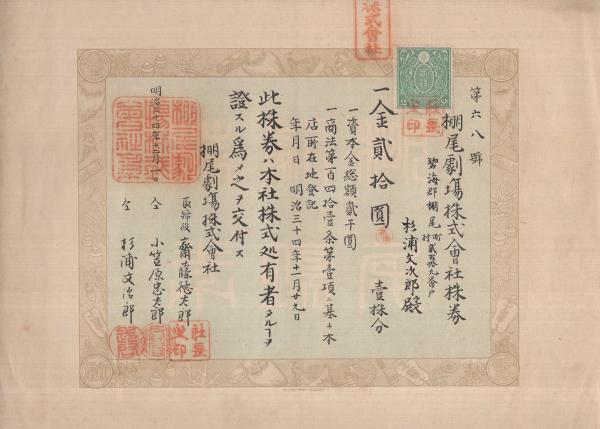 株式會社
第六八號
棚尾劇場株式會社株券
碧海郡棚尾町
杉浦文次郎殿
一金貳拾圓
壹株分
一資本金総額貳千圓
一商法第百四拾壹条第壹項ニ基キ本
店所在地登記
年月日 明治三十四年十一月廿九日
此株券ハ本社株式処有者タルーヲ
證スル為メ之ヲ交付ス
棚尾劇場株式會社
取締役 齋藤徳太郎
仝 小笠原忠太郎
仝 杉浦文治郎
社長之印
社長之印